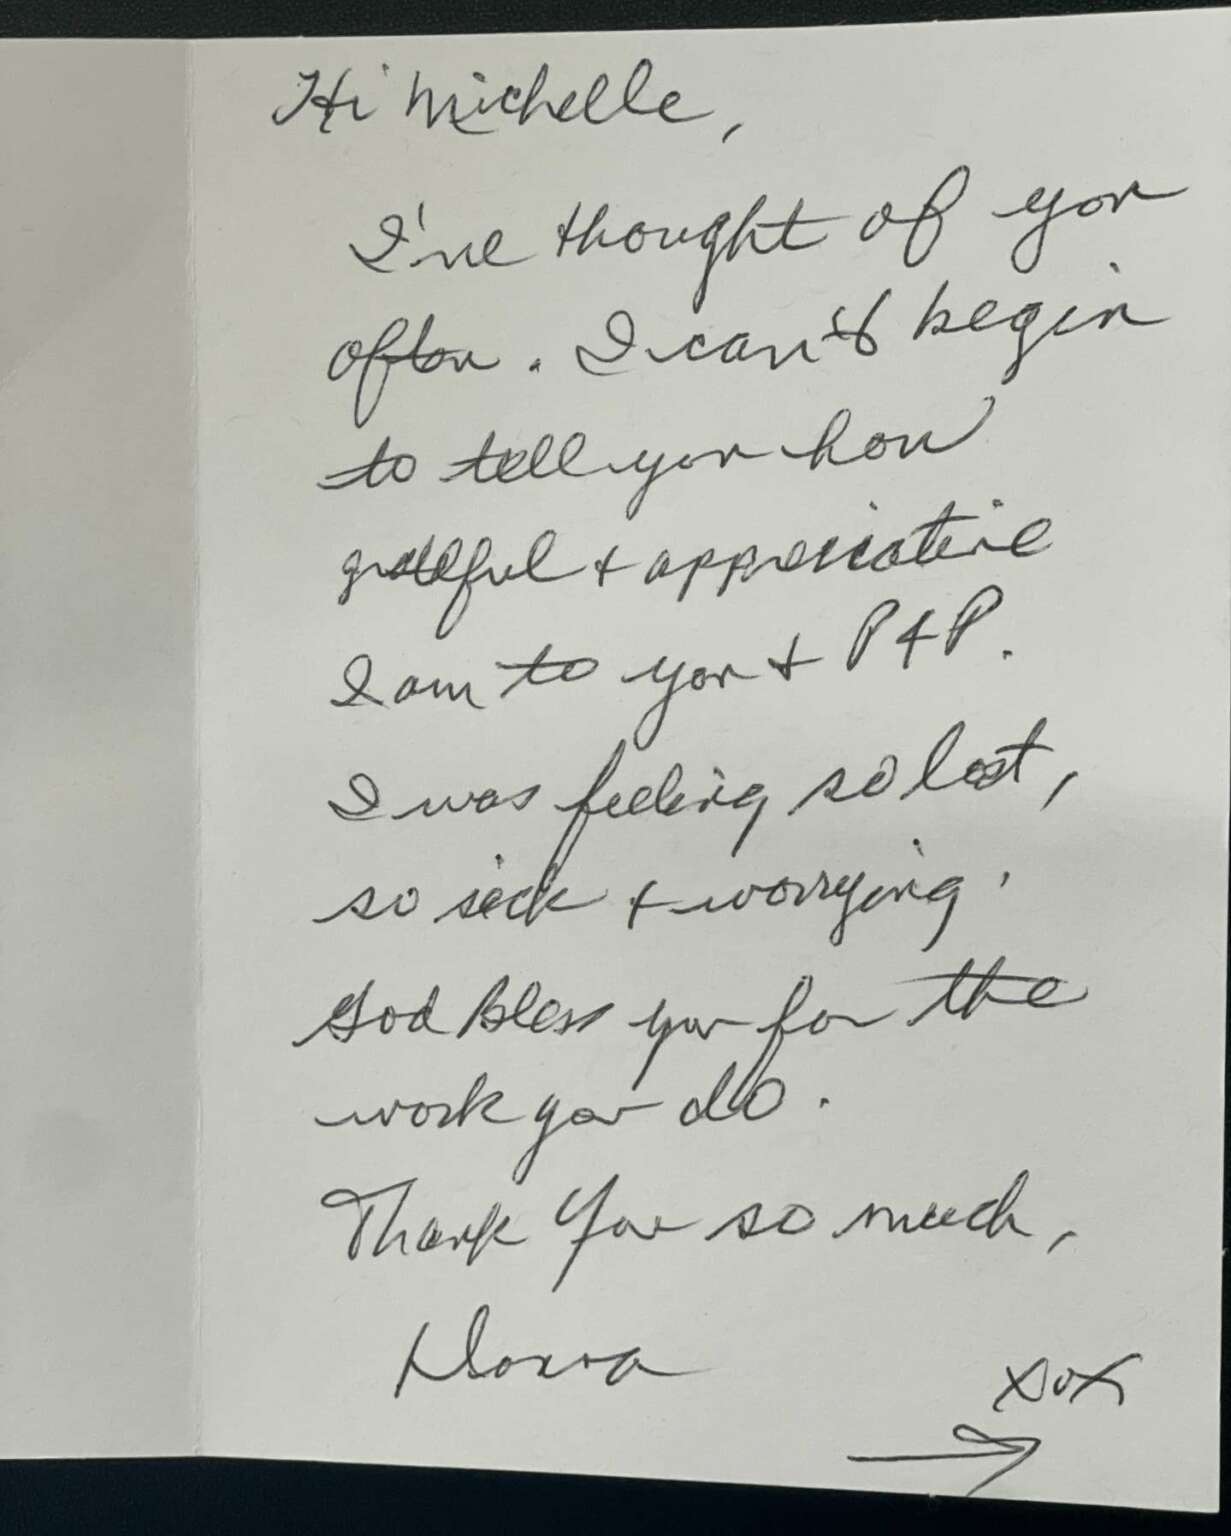 Hi Michelle,
I've thought of you
often. I can't begin
to tell you how
grateful + appreciative
I am to you + P+P.
I was feeling so lost,
so sick + worrying.
God Bless you for the
work you do.
Thank You so much,
Donna
xox
→